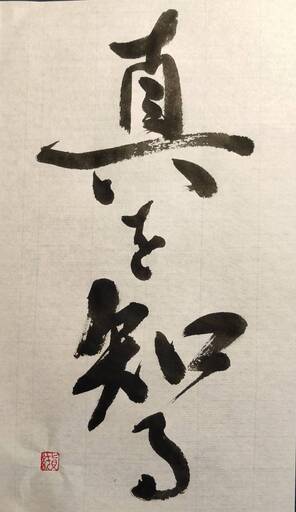 真を知る